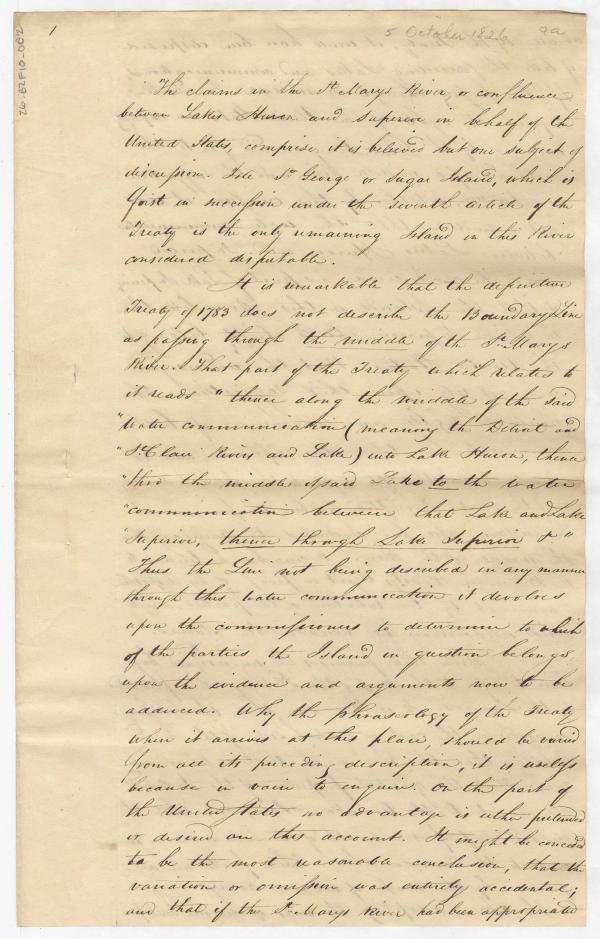 1
5 October 1826
9a
26.62F10-002
The claims in the St. Marys River or confluence
between Lakes Huron and Superior in behalf of the
United States, comprise it is believed but one subject of
discussion. Isle St. George or Sugar Island, which is
first in succession under the seventh article of the
Treaty is the only remaining Island in this River
considered disputable.
It is remarkable that the definitive
Treaty of 1783 does not describe the Boundary Line
as passing through the middle of the St. Marys
River. That part of the Treaty which relates to
it reads "thence along the middle of the said
"water communication (meaning the Detroit and
"St. Clair Rivers and Lake) into Lake Huron, thence
"thro the middle of said Lake to the water
"communication between that Lake and Lake
"Superior, thence through Lake Superior &"
Thus the Line not being described in any manner
through this water communication it devolves
upon the commissioners to determine to which
of the parties the Island in question belongs
upon the evidence and arguments now to be
adduced. Why the phraseology of the Treaty
when it arrives at this place, should be varied
from all its preceding description, it is useless
because in vain to enquire. On the part of
the United States no advantage is either pretended
or desired on this account. It might be conceded
to be the most reasonable conclusion, that the
variation or omission was entirely accidental;
and that if the St. Marys River had been appropriated